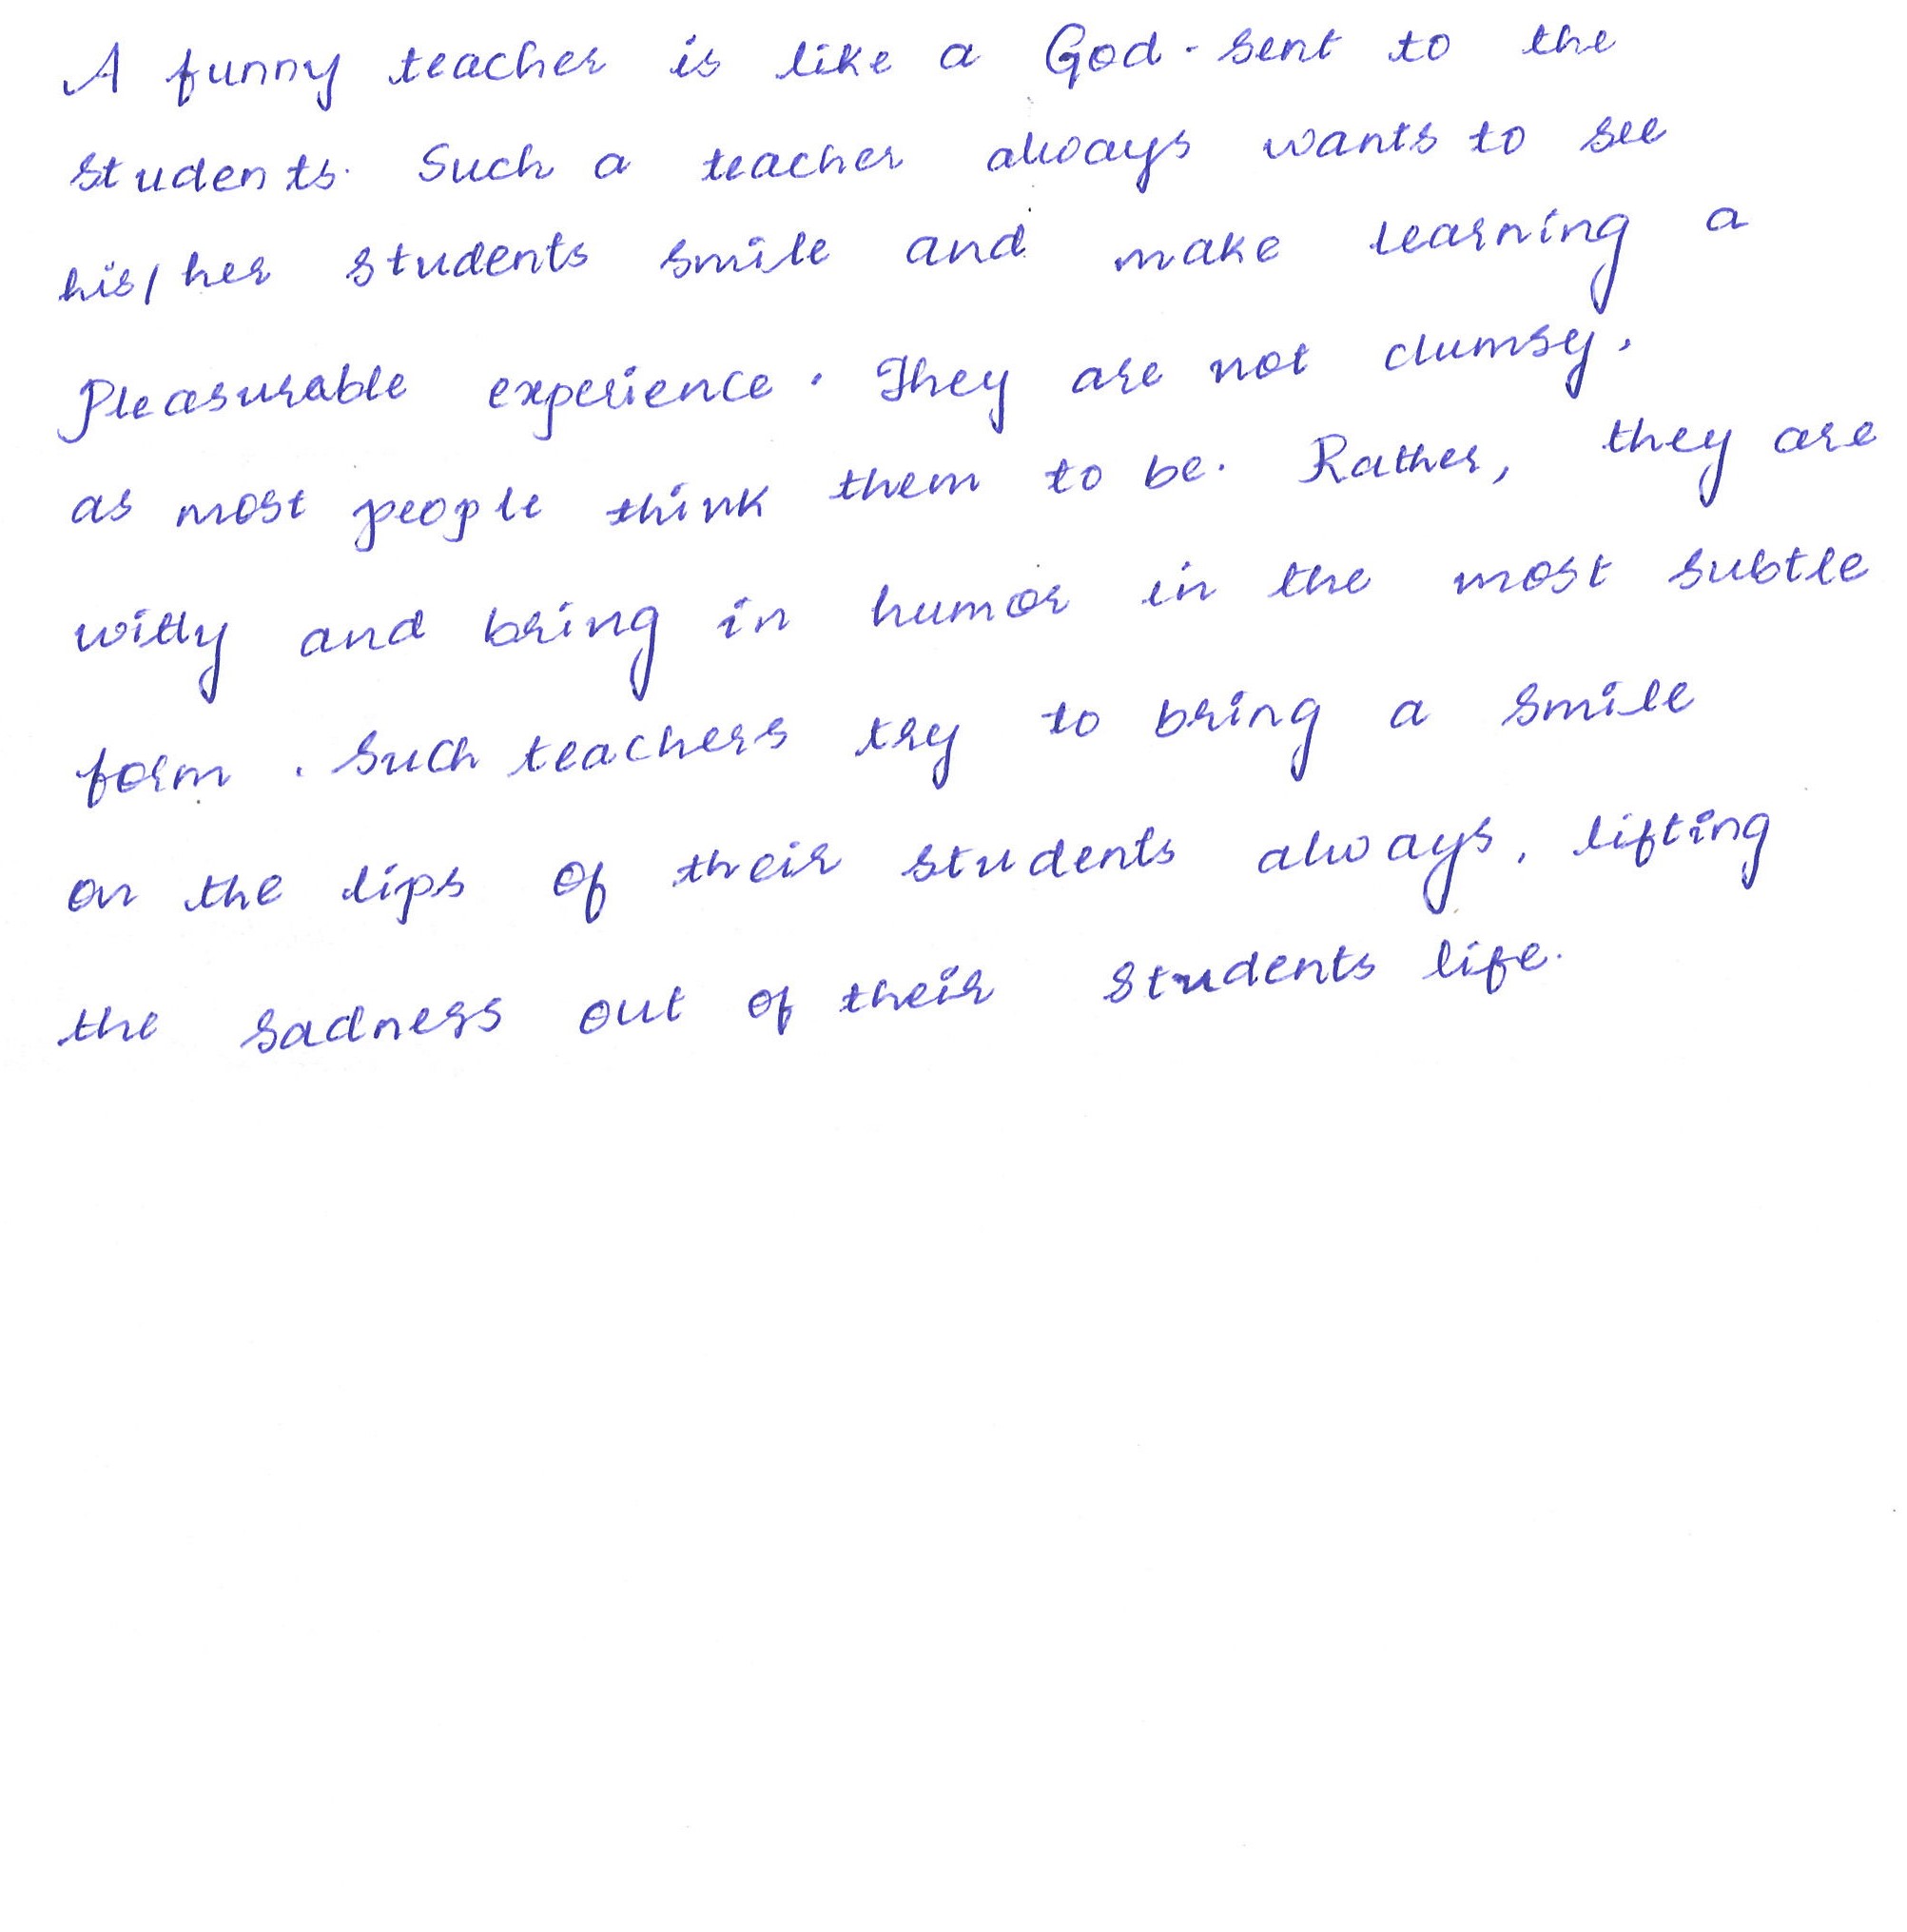 A funny teacher is like a God-sent to the
students. Such a teacher always wants to see
his/her students smile and make learning a
Pleasurable experience. They are not clumsy,
as most people think them to be. Rather, they are
witty and bring in humor in the most subtle
form. Such teachers try to bring a smile
on the lips of their students always, lifting
the sadness out of their students life.